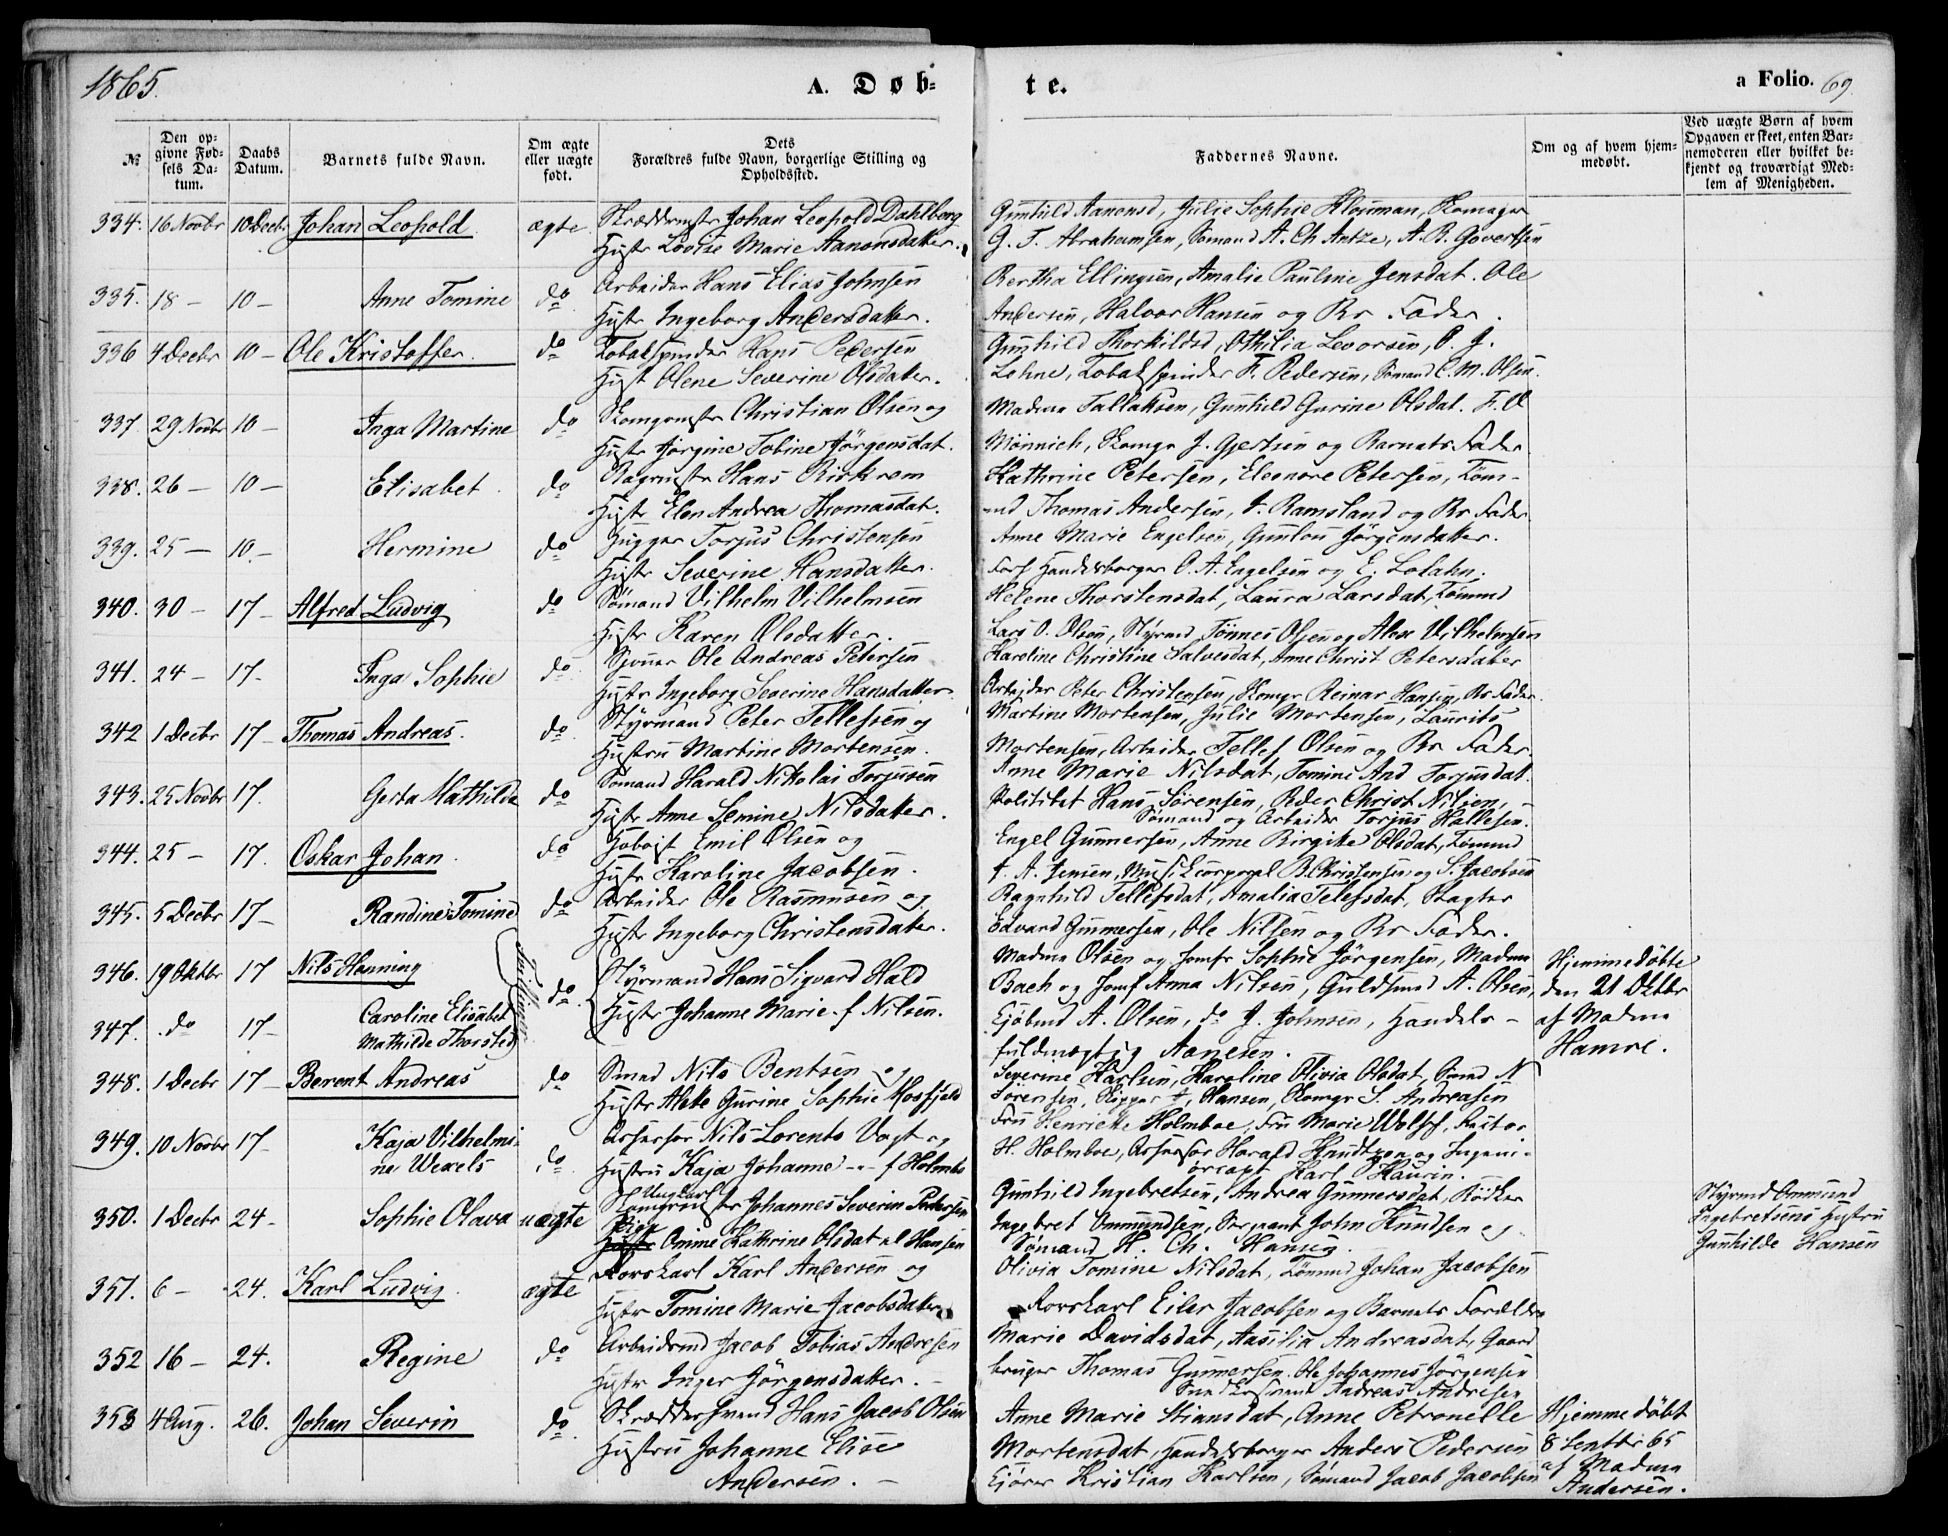 1865.
A. Døb-
te.
a Folio. 69.
№
Den op-
givne Fød-
sels Da-
tum.
Daabs
Datum.
Barnets fulde Navn.
Om ægte
eller uægte
født.
Dets
Forældres fulde Navn, borgerlige Stilling og
Opholdssted.
Faddernes Navne.
Om og af hvem hjem-
medøbt.
Ved uægte Børn af hvem
Opgaven er skeet, enten Bar-
nemoderen eller hvilket be-
kjendt og troværdigt Med-
lem af Menigheden.
334. 16 Novbr 10 Decbr Johan Leopold ægte Skræddermstr Johan Leopold Dahlberg
Hustr Lovise Marie Aanonsdatter.
Gunhild Aanonsd, Julie Sophie Klouman, Skomager
G. T. Abrahamsen, Sømand A. Ch Antze, A. B. Govertsen
335. 18 - 10 - Anne Tomine do Arbeider Hans Elias Johnsen
Hustr Ingeborg Andersdatter.
Bertha Ellingsen, Amalie Pauline Jensdat. Ole
Andersen, Halvor Hansen og Br Fader.
336 4 Decbr 10 - Ole Kristoffer. do Tobakspinder Hans Pedersen
Hust Olene Severine Olsdatter.
Gunhild Thorkildsd, Othilia Levorsen, O. J.
Lehne, Tobakspinder F. Pedersen, Sømand C. M. Olsen.
337 29 Novbr 10 - Inga Martine do Skomgrmstr Christian Olsen og
Hustr Jørgine Tobine Jørgensdat.
Madme Tallaksen, Gunhild Gurine Olsdat. F. O
Mönnich, Skomgr J. Gjertsen og Barnets Fader
338. 26 - 10 - Elisabet do Bagermstr Hans Birkrem
Hustr Elen Andrea Thomasdat.
Kathrine Petersen, Eleonore Petersen, Töm-
md Thomas Andersen, T. Ramsland og Br Fader
339. 25 - 10 - Hermine do Hugger Torjus Christensen
Hustr Severine Hansdatter.
Anne Marie Engelsen, Gunlou Jörgensdatter.
Forh Handelsborger O. A. Engelsen og
340. 30 - 17 - Alfred Ludvig do Sømand Vilhelm Vilhelmsen
Hustr Karen Olsdatter.
Helene Thorstensdat, Laura Larsdat, Tømmd
Lars O. Olsen, Styrmd Tönnes Olsen og Alexe Vilhelmsen
341. 24 - 17 - Inga Sophie do Sjouer Ole Andreas Petersen
Hustr Ingeborg Severine Hansdatter.
Karoline Christine Salvesdat, Anne Christ Petersdatter
Arbeider Peter Christensen, Skomgr Reinar Hansen, Br Fader.
342 1 Decbr 17 - Thomas Andreas. do Styrmand Peter Tellefsen og
Hustru Martine Mortensen.
Martine Mortensen, Julie Mortensen, Laurits
Mortensen, Arbeider Tellef Olsen og Br Fader
343. 25 Novbr 17. Gerta Mathilde do Sømand Harald Nikolai Torjusen
Hustr Anne Semine Nilsdatter.
Anne Marie Nilsdat, Tomine And Torjusdat.
Politibt Hans Sörensen, Peder Christ Nilsen,
Sømand og Arbeider Torjus Hallesen.
344. 25 - 17. Oskar Johan. do Hoboist Emil Olsen og
Hustr Karoline Jacobsen.
Engel Gunnersen, Anne Birgitte Olsdat, Tømmd
F. A. Jensen, Musikcorporal B. Christensen og S. Jacobsen
345. 5 Decbr 17 - Randine Tomine do Arbeider Ole Rasmusen og
Hustr Ingeborg Christensdatter.
Ragnhild Tellefsdat, Amalia Telefsdat, Slagter
Edvard Gunnersen, Ole Nilsen og Br Fader.
346. 19 Oktbr 17 Nils Henning Tvillinger do Styrmand Hans Sigvard Hald
347. do 17 - Caroline Elisabet
Mathilde Thorsted
Hustr Johanne Marie f Nilsen.
Madme Olsen og Jomfr Sophie Jörgensen, Madme
Bach og Jomf Anna Nilsen, Guldsmd A. Olsen,
Kjöbmd A. Olsen, do J. Johnsen, Handels-
fuldmægtig Aanesen.
Hjemmedøbte
den 21 Oktbr
af Madme
Hamre.
348. 1 Decbr 17 - Berent Andreas do Smed Nils Bentsen og
Hustr Alete Gurine Sophie Mosfjeld
Severine Karlsen, Karoline Olivia Olsdat, Smed N
Sörensen, Skipper F. Hansen, Skomgr S. Andreasen
349. 10 Novbr 17 - Kaja Vilhelmi-
ne Wexels do Assessor Nils Lorents Vogt og
Hustru Kaja Johanne - f Holmboe
Fru Henriette Holmboe, Fru Marie Wolff, Rector
H. Holmboe, Assessor Harald Knudtzon og Ingeni-
örcapt Karl Haurin.
350. 1 Decbr 24 - Sophie Olava uægte Ungkarl
Skomgrmstr Johannes Severin Pedersen
Pige
Hustr Omine Kathrine Olsdat el Hansen
Gunhild Ingebretsen, Andrea Gunnersdat, Bödker
Ingebret Ommundsen, Sergeant John Knudsen og
Sømand H. Ch. Hansen.
Styrmd Ommund
Ingebretsens Hustru
Gunhilde Hansen
351. 6 - 24. Karl Ludvig. ægte Rorskarl Karl Andersen og
Hustr Tomine Marie Jacobsdatter
Olivia Tomine Nilsdat, Tømmd Johan Jacobsen
Rorskarl Eiler Jacobsen og Barnets Forældre
352 16 - 24. Regine do Arbeidsmd Jacob Tobias Andresen
Hustr Inger Jörgensdatter. -
Marie Davidsdat, Aasilia Andreasdat, Gaard
bruger Thomas Gunnersen, Ole Johannes Jörgensen
Smedesvend Andreas Andresen
353 4 Aug. 26. Johan Severin do Skræddersvend Hans Jacob Olsen
Hustru Johanne Elise
Andersen. -
Anne Marie Stiansdat, Anne Petronelle
Mortensdat, Handelsborger Anders Pedersen
Kjører Kristian Karlsen, Sømand Jacob Jacobsen
Hjemmedøbt
8 Septbr 65
af Madme
Andersen.